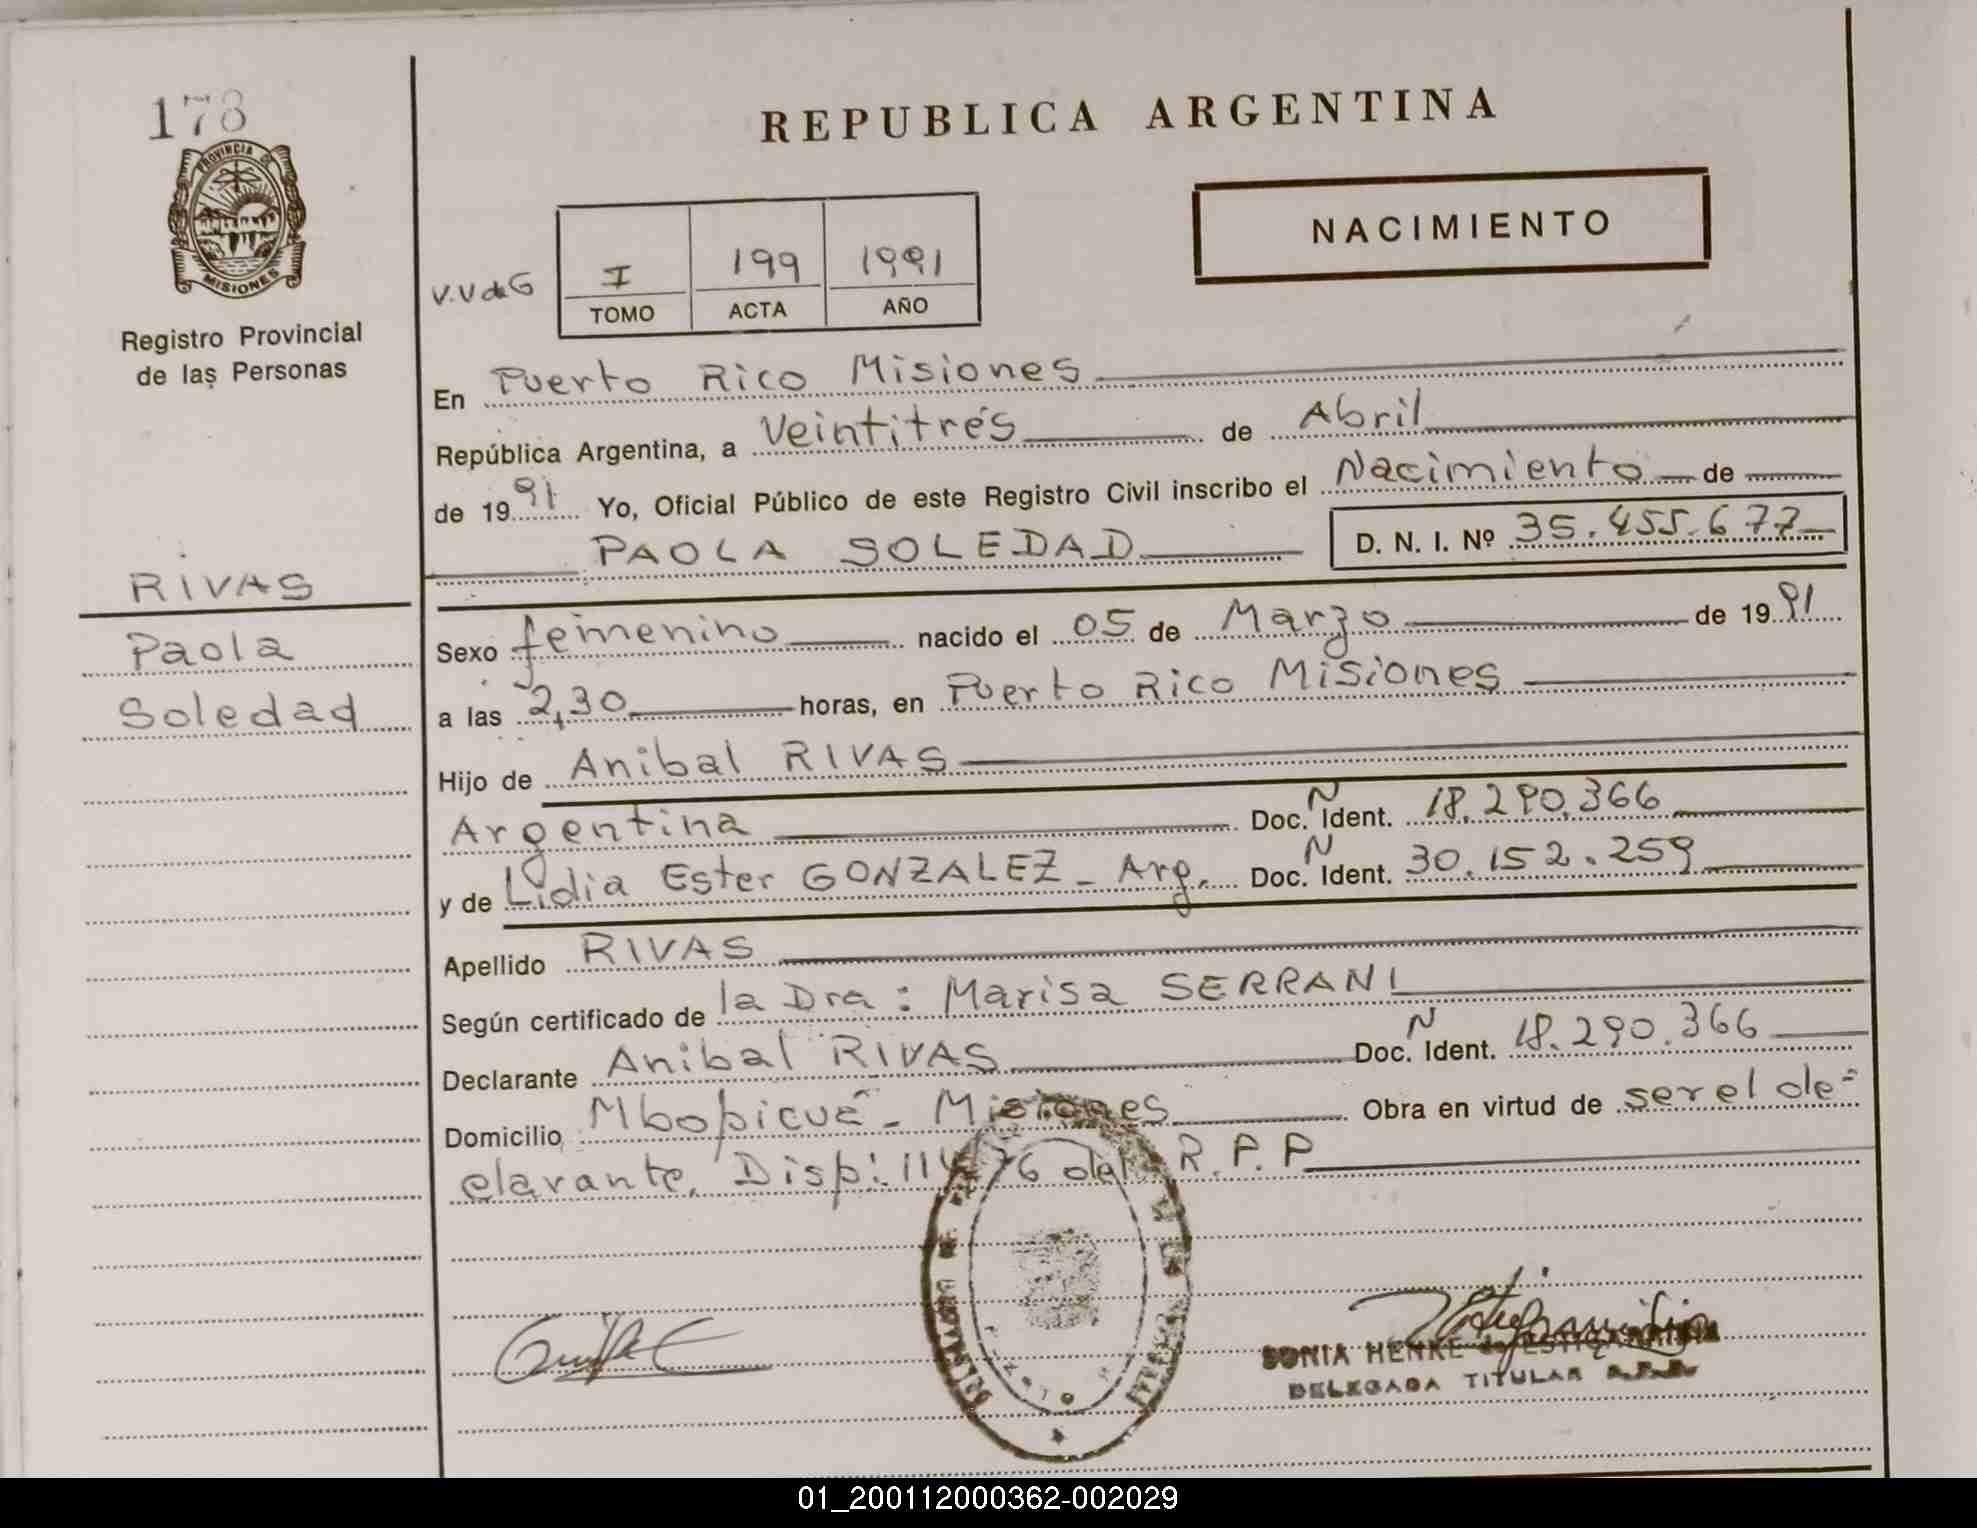 178
PROVINCIA DE
MISIONES
Registro Provincial
de las Personas
RIVAS
Paola
Soledad
REPUBLICA ARGENTINA
NACIMIENTO
V.V de G
I 199 1991
TOMO ACTA AÑO
En Puerto Rico Misiones
República Argentina, a Veintitrés de Abril
de 1991 Yo, Oficial Público de este Registro Civil inscribo el Nacimiento de
PAOLA SOLEDAD D. N. I. Nº 35.455.677
Sexo femenino nacido el 05 de Marzo de 1991
a las 2,30 horas, en Puerto Rico Misiones
Hijo de Anibal RIVAS
Argentina Doc. N Ident. 18.290.366
y de Lidia Ester GONZALEZ - Arg. Doc. N Ident. 30.152.259
Apellido RIVAS
Según certificado de la Dra: Marisa SERRANI
Declarante Anibal RIVAS Doc. N Ident. 18.290.366
Domicilio Mbopicuá - Misiones Obra en virtud de ser el de=
clarante. Disp: 76 del R.P.P
SONIA HENKE
DELEGADA TITULAR R.P.P.
01_200112000362-002029